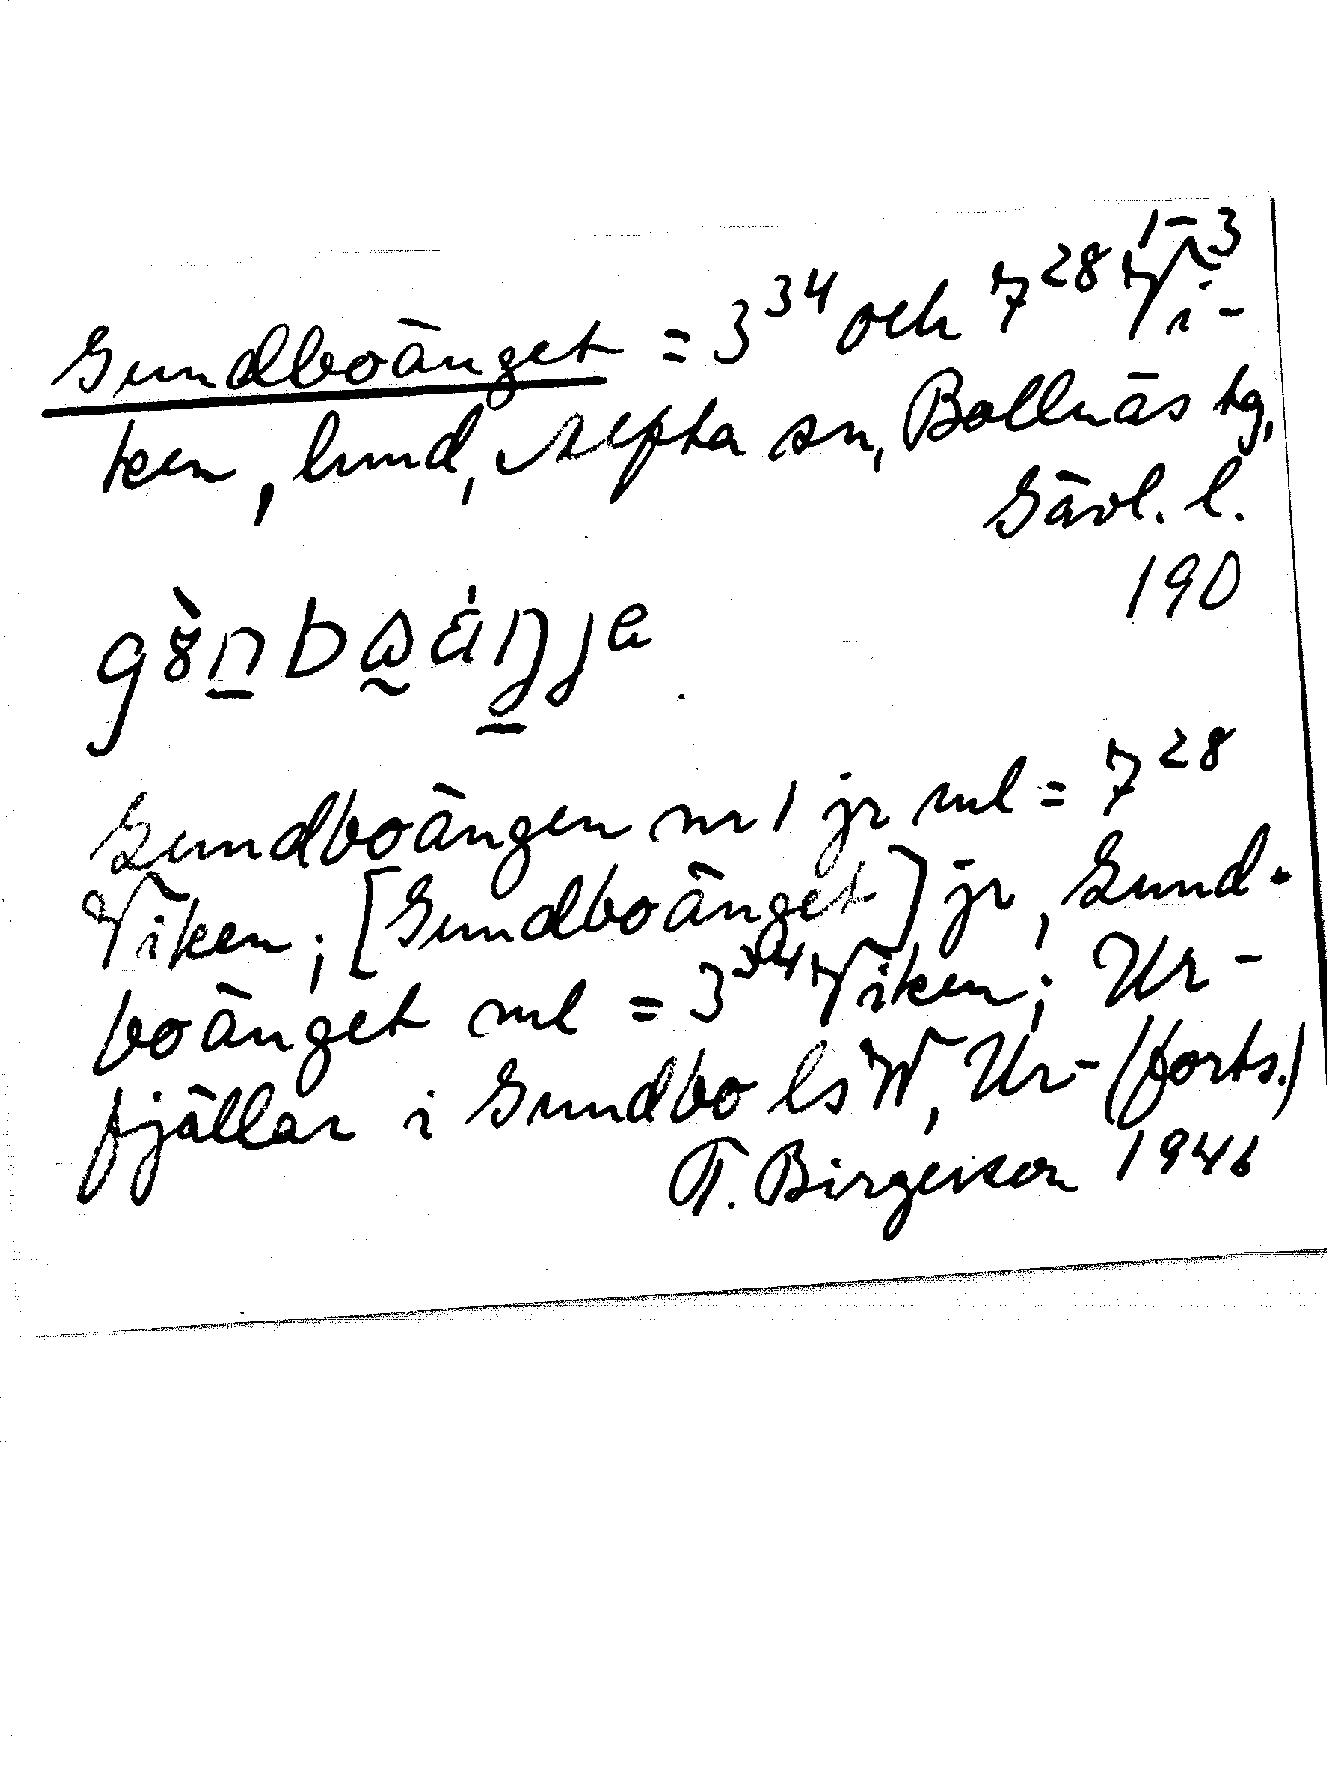 Gundboänget = 3³⁴ och 7²⁸ ¹⁻³ Vi-
ken, lund, Alfta sn, Bollnäs tg,
Gävl. l.
190
Gundboängen nr 1 jr ml = 7²⁸
Viken; [Gundboänget] jr, Gund-
boänget ml = 3³⁴ Viken; Ur-
fjällar i Gundbo ls W, Ur- (forts.)
T. Birgerson 1946